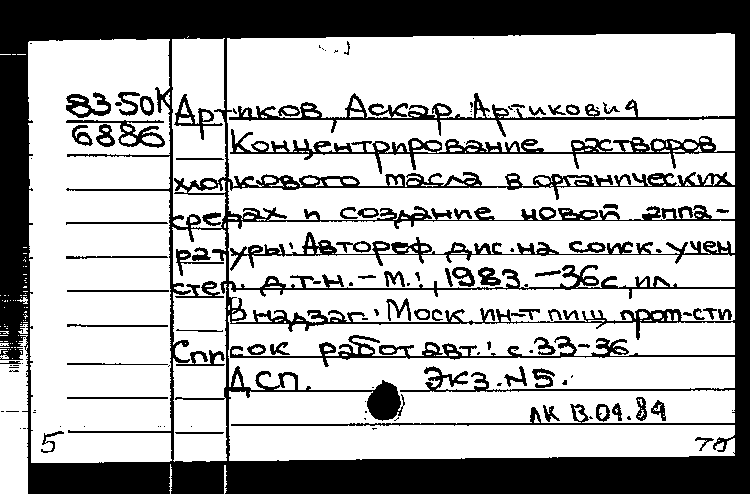 83-50К Артиков, Аскар Артикович
6886 Концентрирование растворов
хлопкового масла в органических
средах и создание новой аппа-
ратуры: Автореф. дис. на соиск. учен
степ. д.т.н. - М.:, 1983. - 36с, ил.
В надзаг.: Моск. ин-т пищ. пром-сти
Список работ авт.: с. 33-36.
ДСП. Экз. N5.
ЛК 13.04.84
5